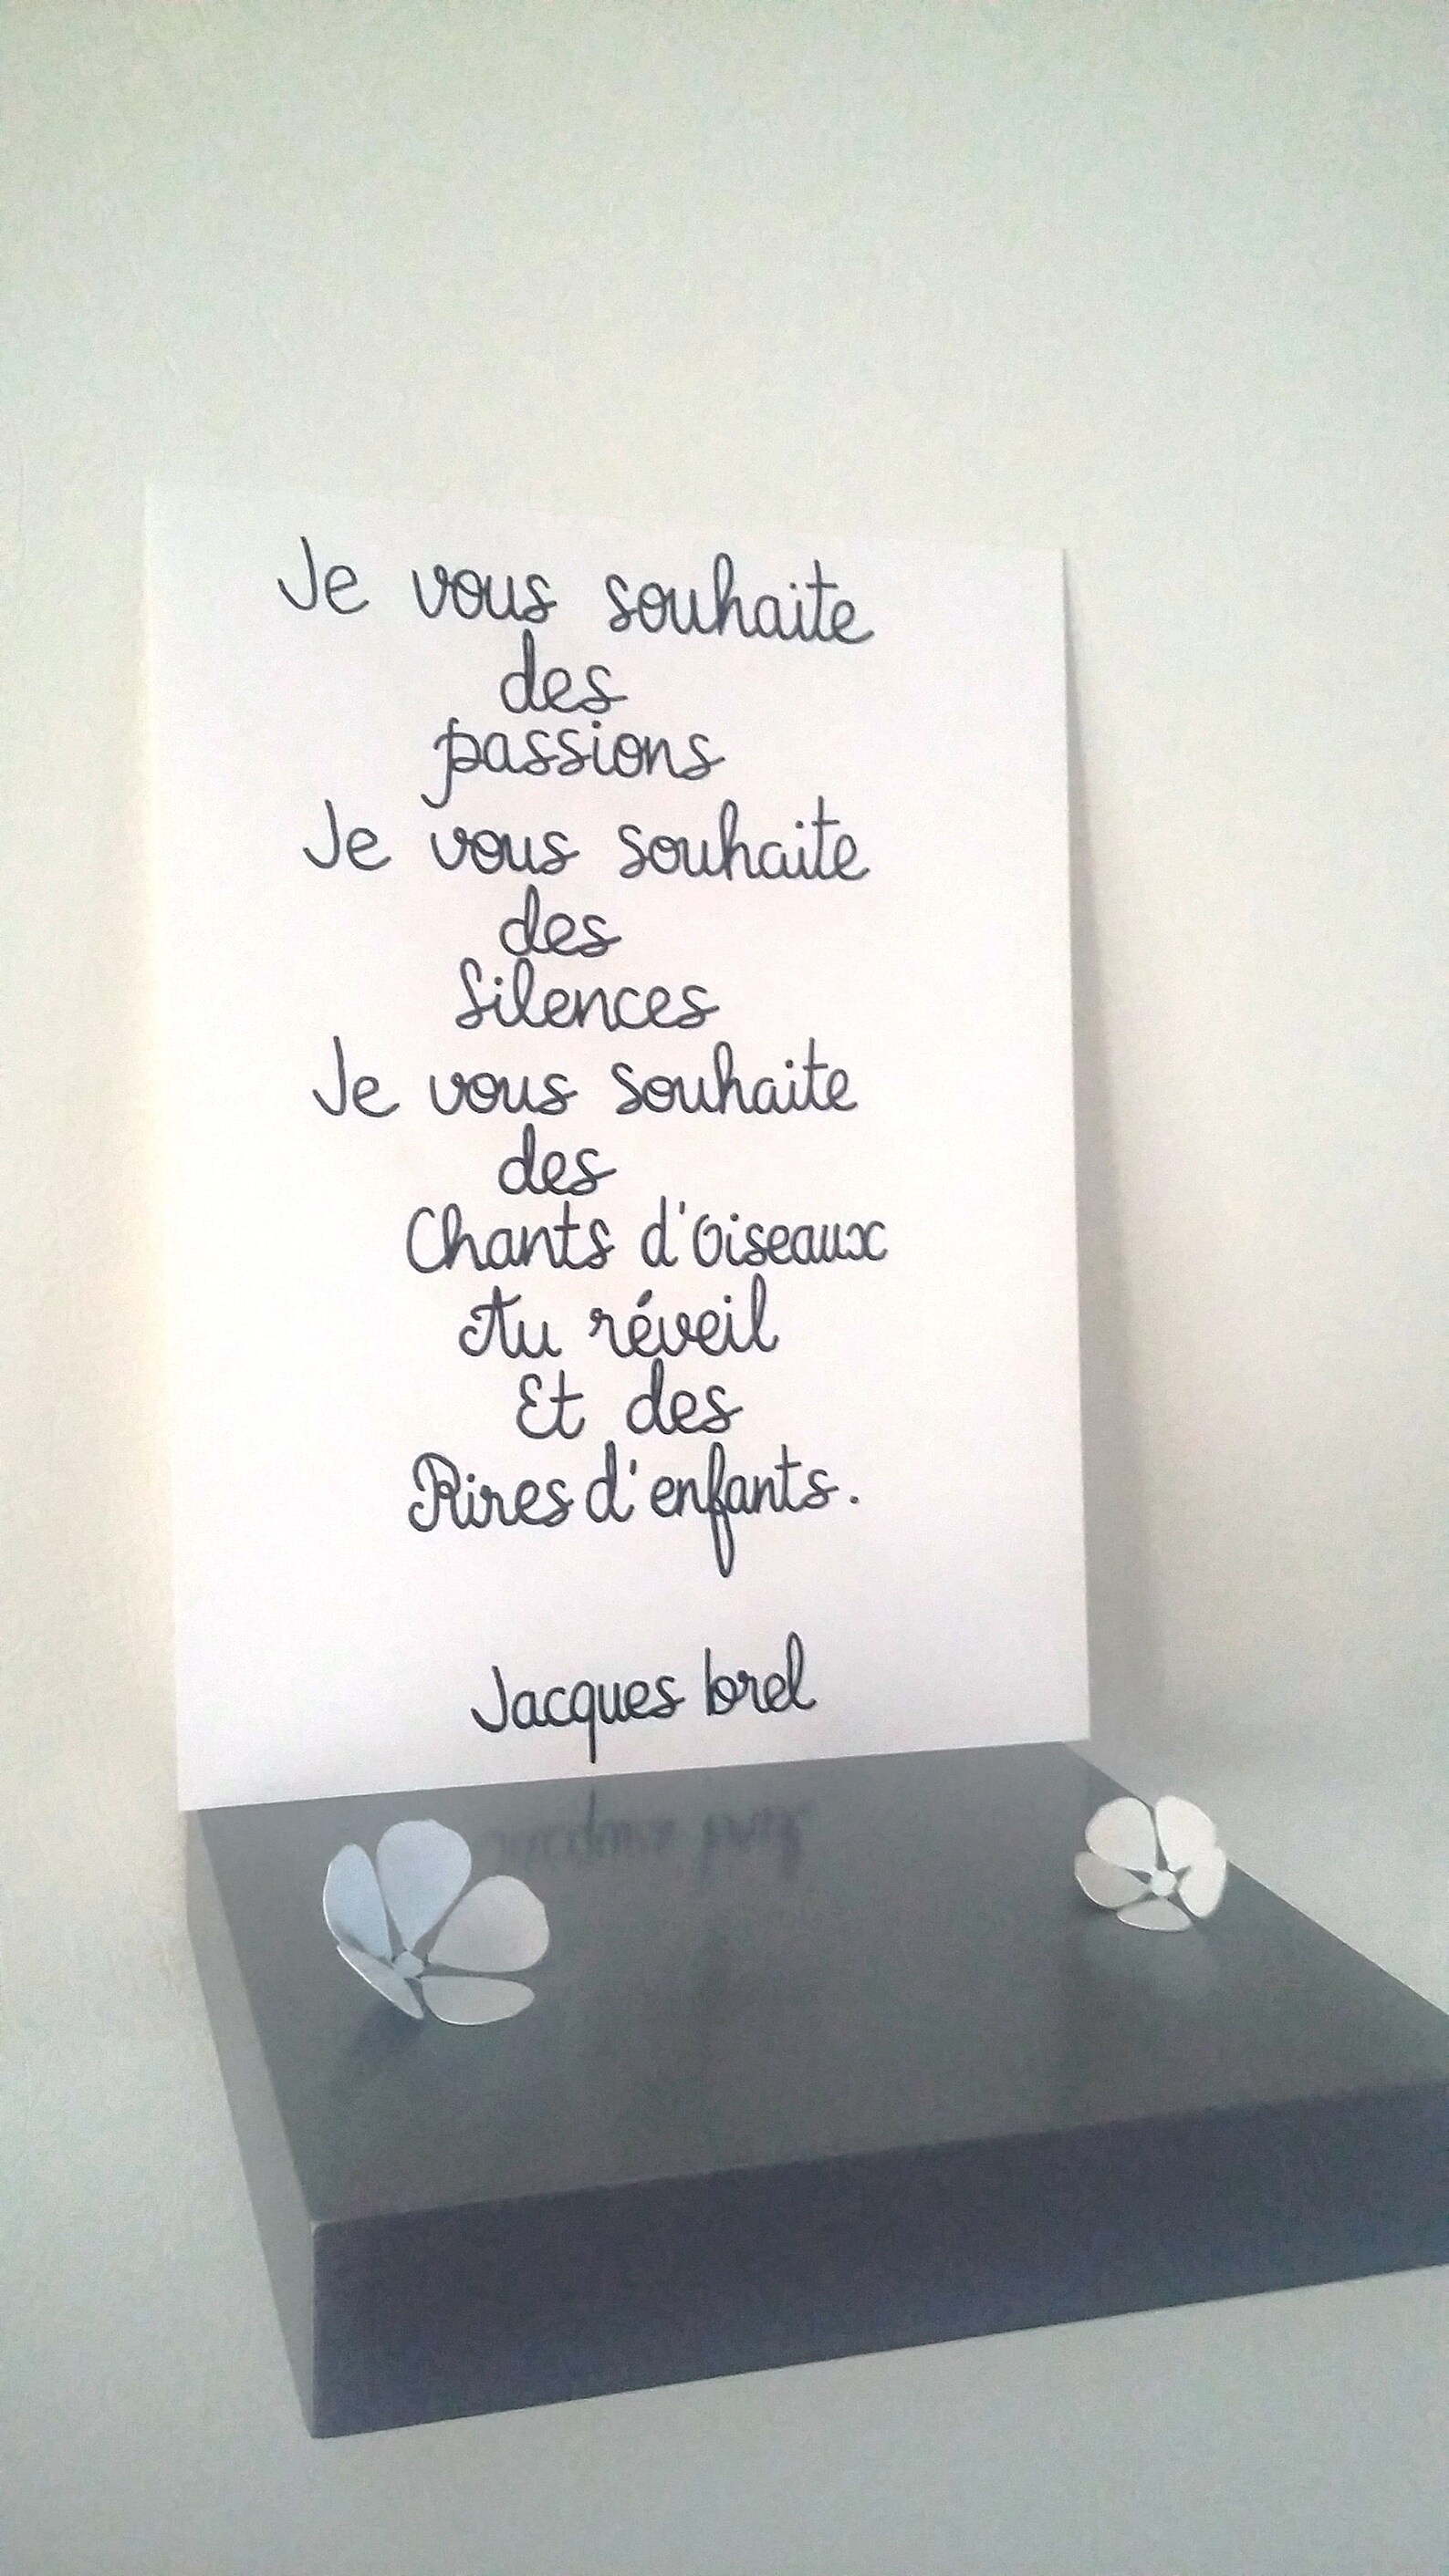 Je vous souhaite
des
passions
Je vous souhaite
des
Silences
Je vous souhaite
des
Chants d'Oiseaux
Au réveil
Et des
Rires d'enfants.
Jacques brel